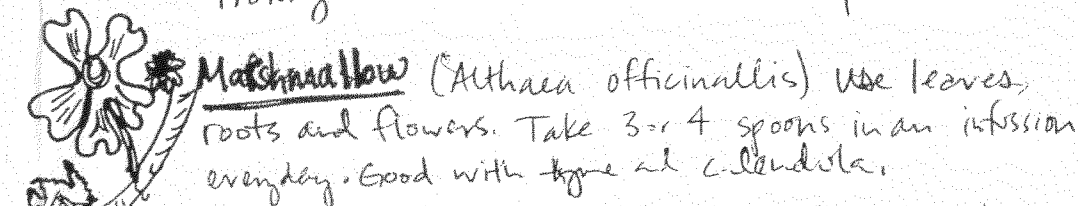 Marshmallow (Althaea officinallis) Use leaves,
roots and flowers. Take 3 or 4 spoons in an infussion
everyday. Good with thyme and calendula.